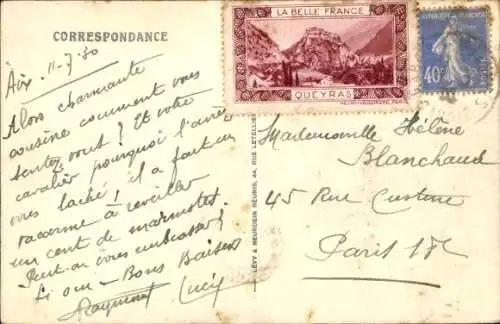 CORRESPONDANCE
Aix. 11-7-30
Alors charmante
cousine comment vous
sentez vous! Et votre
cavalier pourquoi l'avez
vous laché! il a fait un
vacarme à reveiller
un cent de marmotes.
Peut-on vous embrasser!
Si oui - Bons Baisers
Raymond Lucy
LÉVY & NEURDEIN RÉUNIS, 44, RUE LETELLIER
LA BELLE FRANCE
QUEYRAS
40c
Mademoiselle Hélène
Blanchaud
45 Rue Custine
Paris 18e